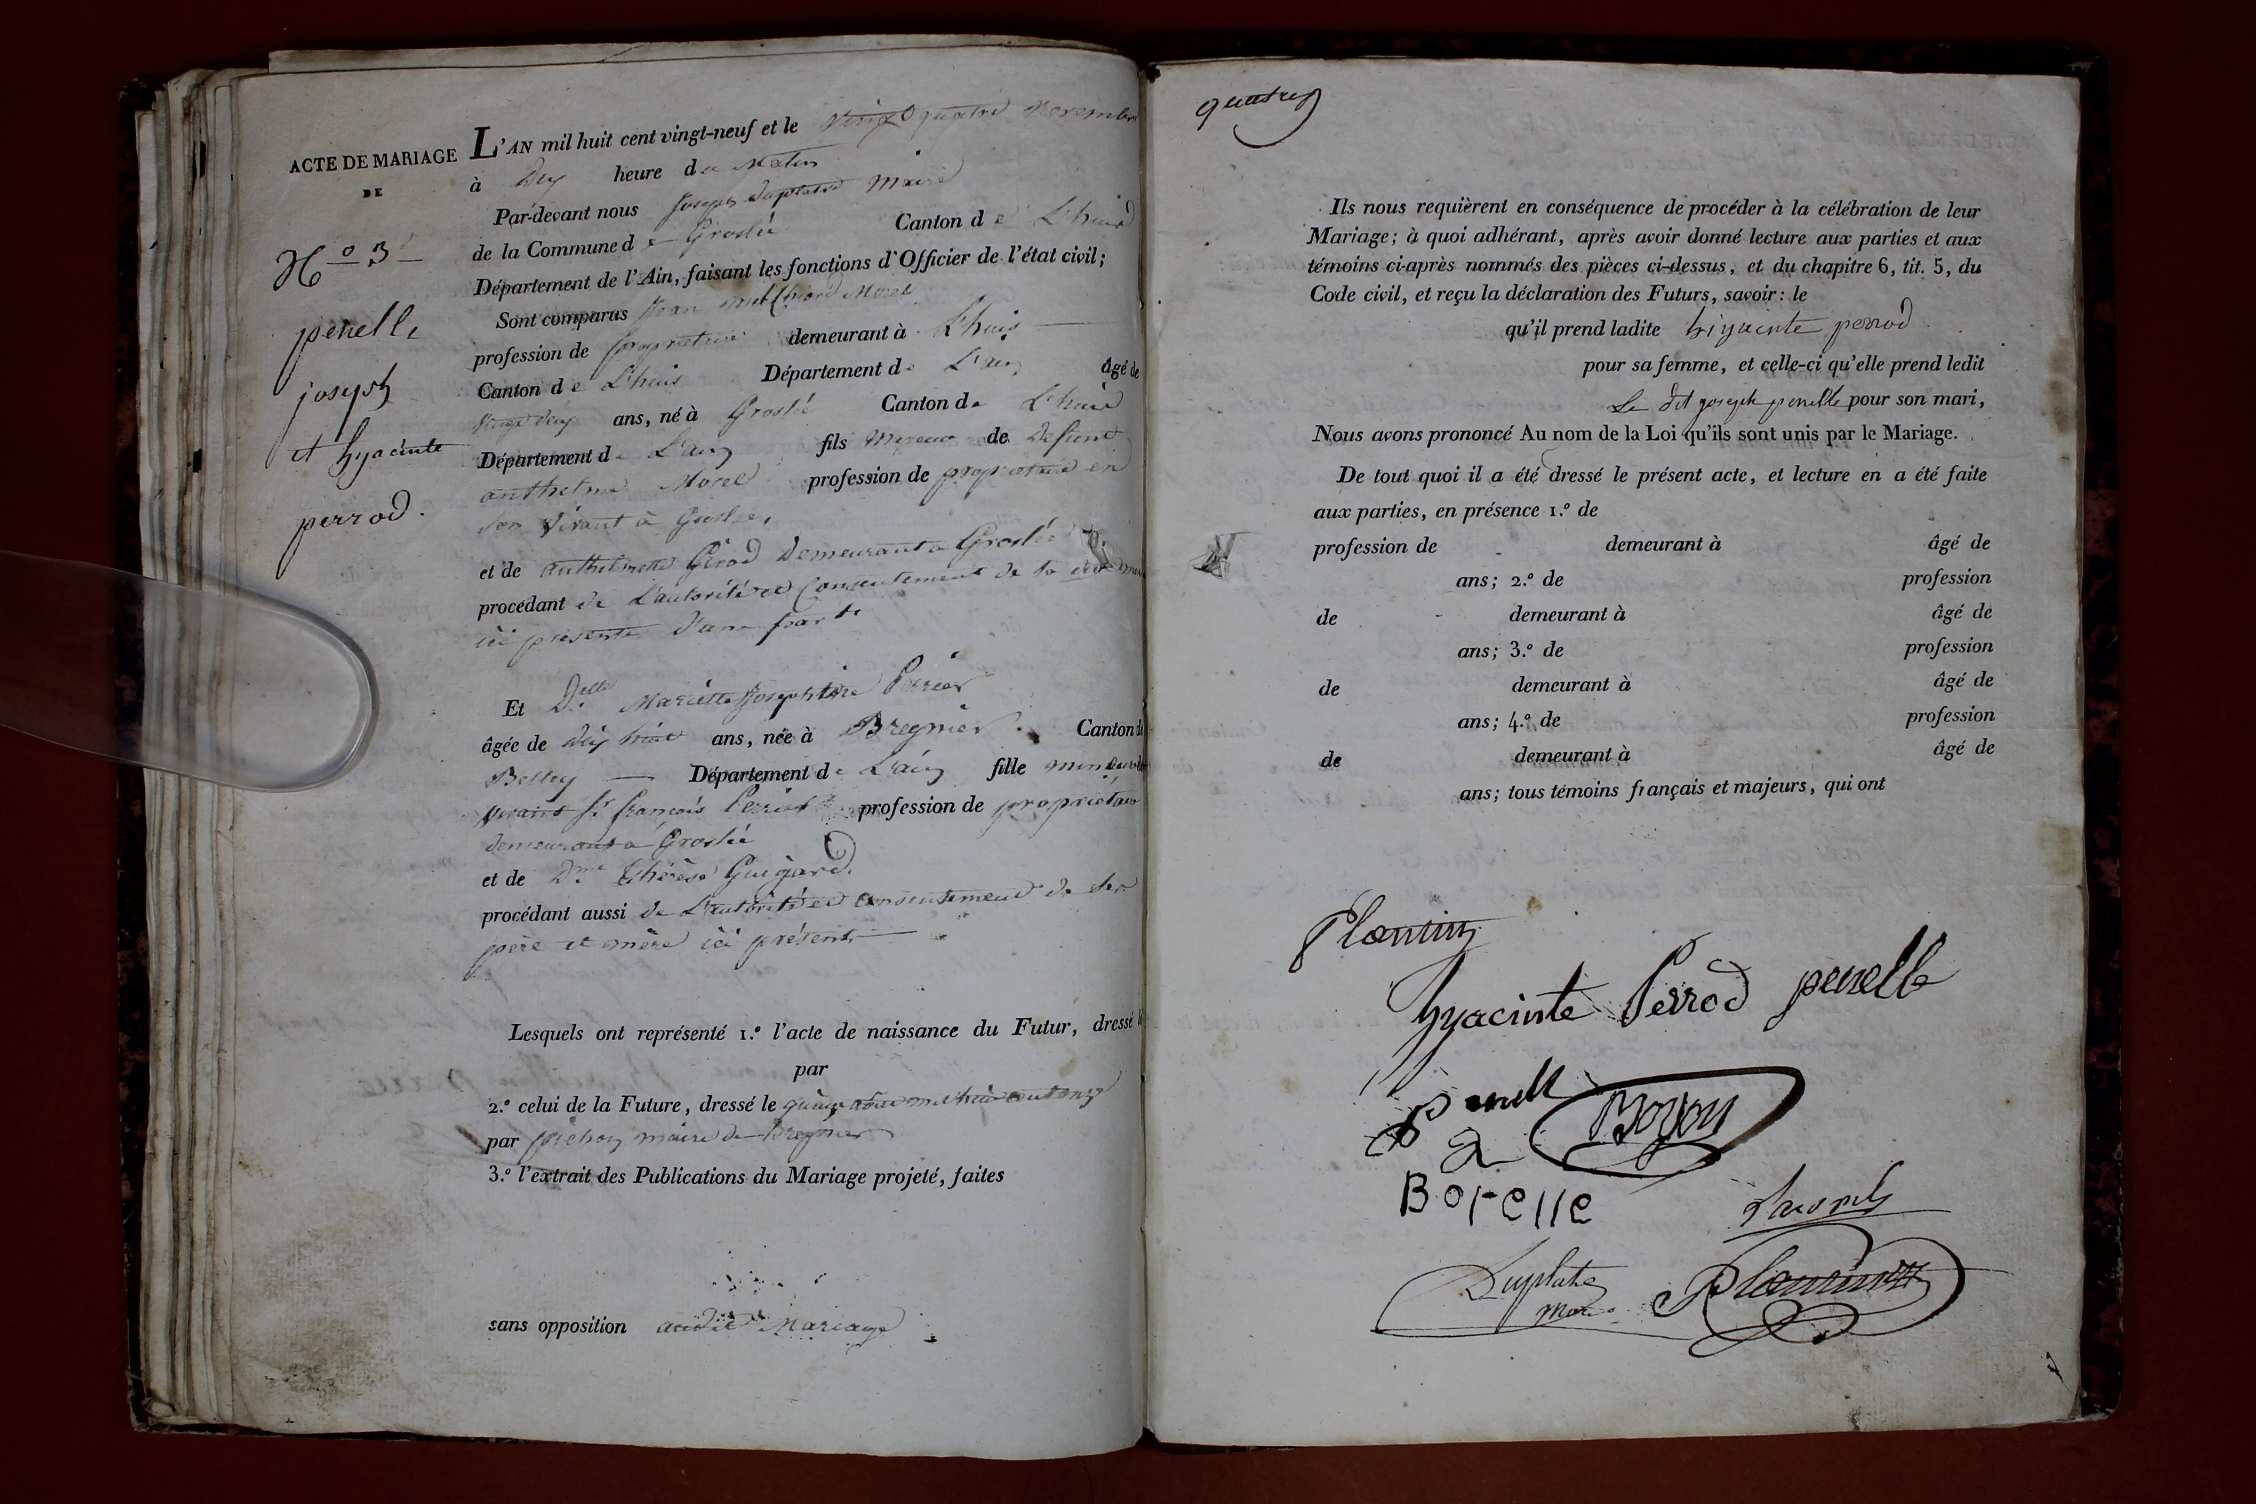 ACTE DE MARIAGE
DE
No 3
penelle
joseph
et hyacinte
perrod.
L'AN mil huit cent vingt-neuf et le vingt quatre novembre
à dix heure du Matin
Par-devant nous joseph Duplatre Maire
de la Commune de Groslée Canton de L'huis
Département de l'Ain, faisant les fonctions d'Officier de l'état civil;
Sont comparus Jean Melchiord Morel
profession de propriétaire demeurant à L'huis
Canton de L'huis Département de L'ain âgé de
vingt deux ans, né à Groslée Canton de L'huis
Département de L'ain fils mineur de defunt
anthelme Morel profession de propriétaire en
son vivant à Groslée,
et de anthelmette Girod demeurant a Groslée
procédant de L'autorité et Consentement de sa mère
ici présente d'une part
Et Delle Mariette Josephine Perrier
âgée de dix huit ans, née à Bregnier. Canton de
Belley Département de L'ain fille mineure
vivant Sr françois Perrier profession de propriétaire
demeurant a Groslée
et de Dme Thérèse Guigard
procédant aussi de L'autorité et consentement de ses
père et mère ici présents
Lesquels ont représenté 1.º l'acte de naissance du Futur, dressé le
par
2.º celui de la Future, dressé le quinze août mil huit cent onze
par maire de Bregnier
3.º l'extrait des Publications du Mariage projeté, faites
sans opposition audit Mariage
quatre
Ils nous requièrent en conséquence de procéder à la célébration de leur
Mariage; à quoi adhérant, après avoir donné lecture aux parties et aux
témoins ci-après nommés des pièces ci-dessus, et du chapitre 6, tit. 5, du
Code civil, et reçu la déclaration des Futurs, savoir: le
qu'il prend ladite hiyacinte perrod
pour sa femme, et celle-ci qu'elle prend ledit
Le dit joseph penelle pour son mari,
Nous avons prononcé Au nom de la Loi qu'ils sont unis par le Mariage.
De tout quoi il a été dressé le présent acte, et lecture en a été faite
aux parties, en présence 1.º de
profession de demeurant à âgé de
ans; 2.º de profession
de demeurant à âgé de
ans; 3.º de profession
de demeurant à âgé de
ans; 4.º de profession
de demeurant à âgé de
ans; tous témoins français et majeurs, qui ont
Plantin
hyacinte Perrod penelle
Penelle Boyon
Borelle
Duplatre
Maire